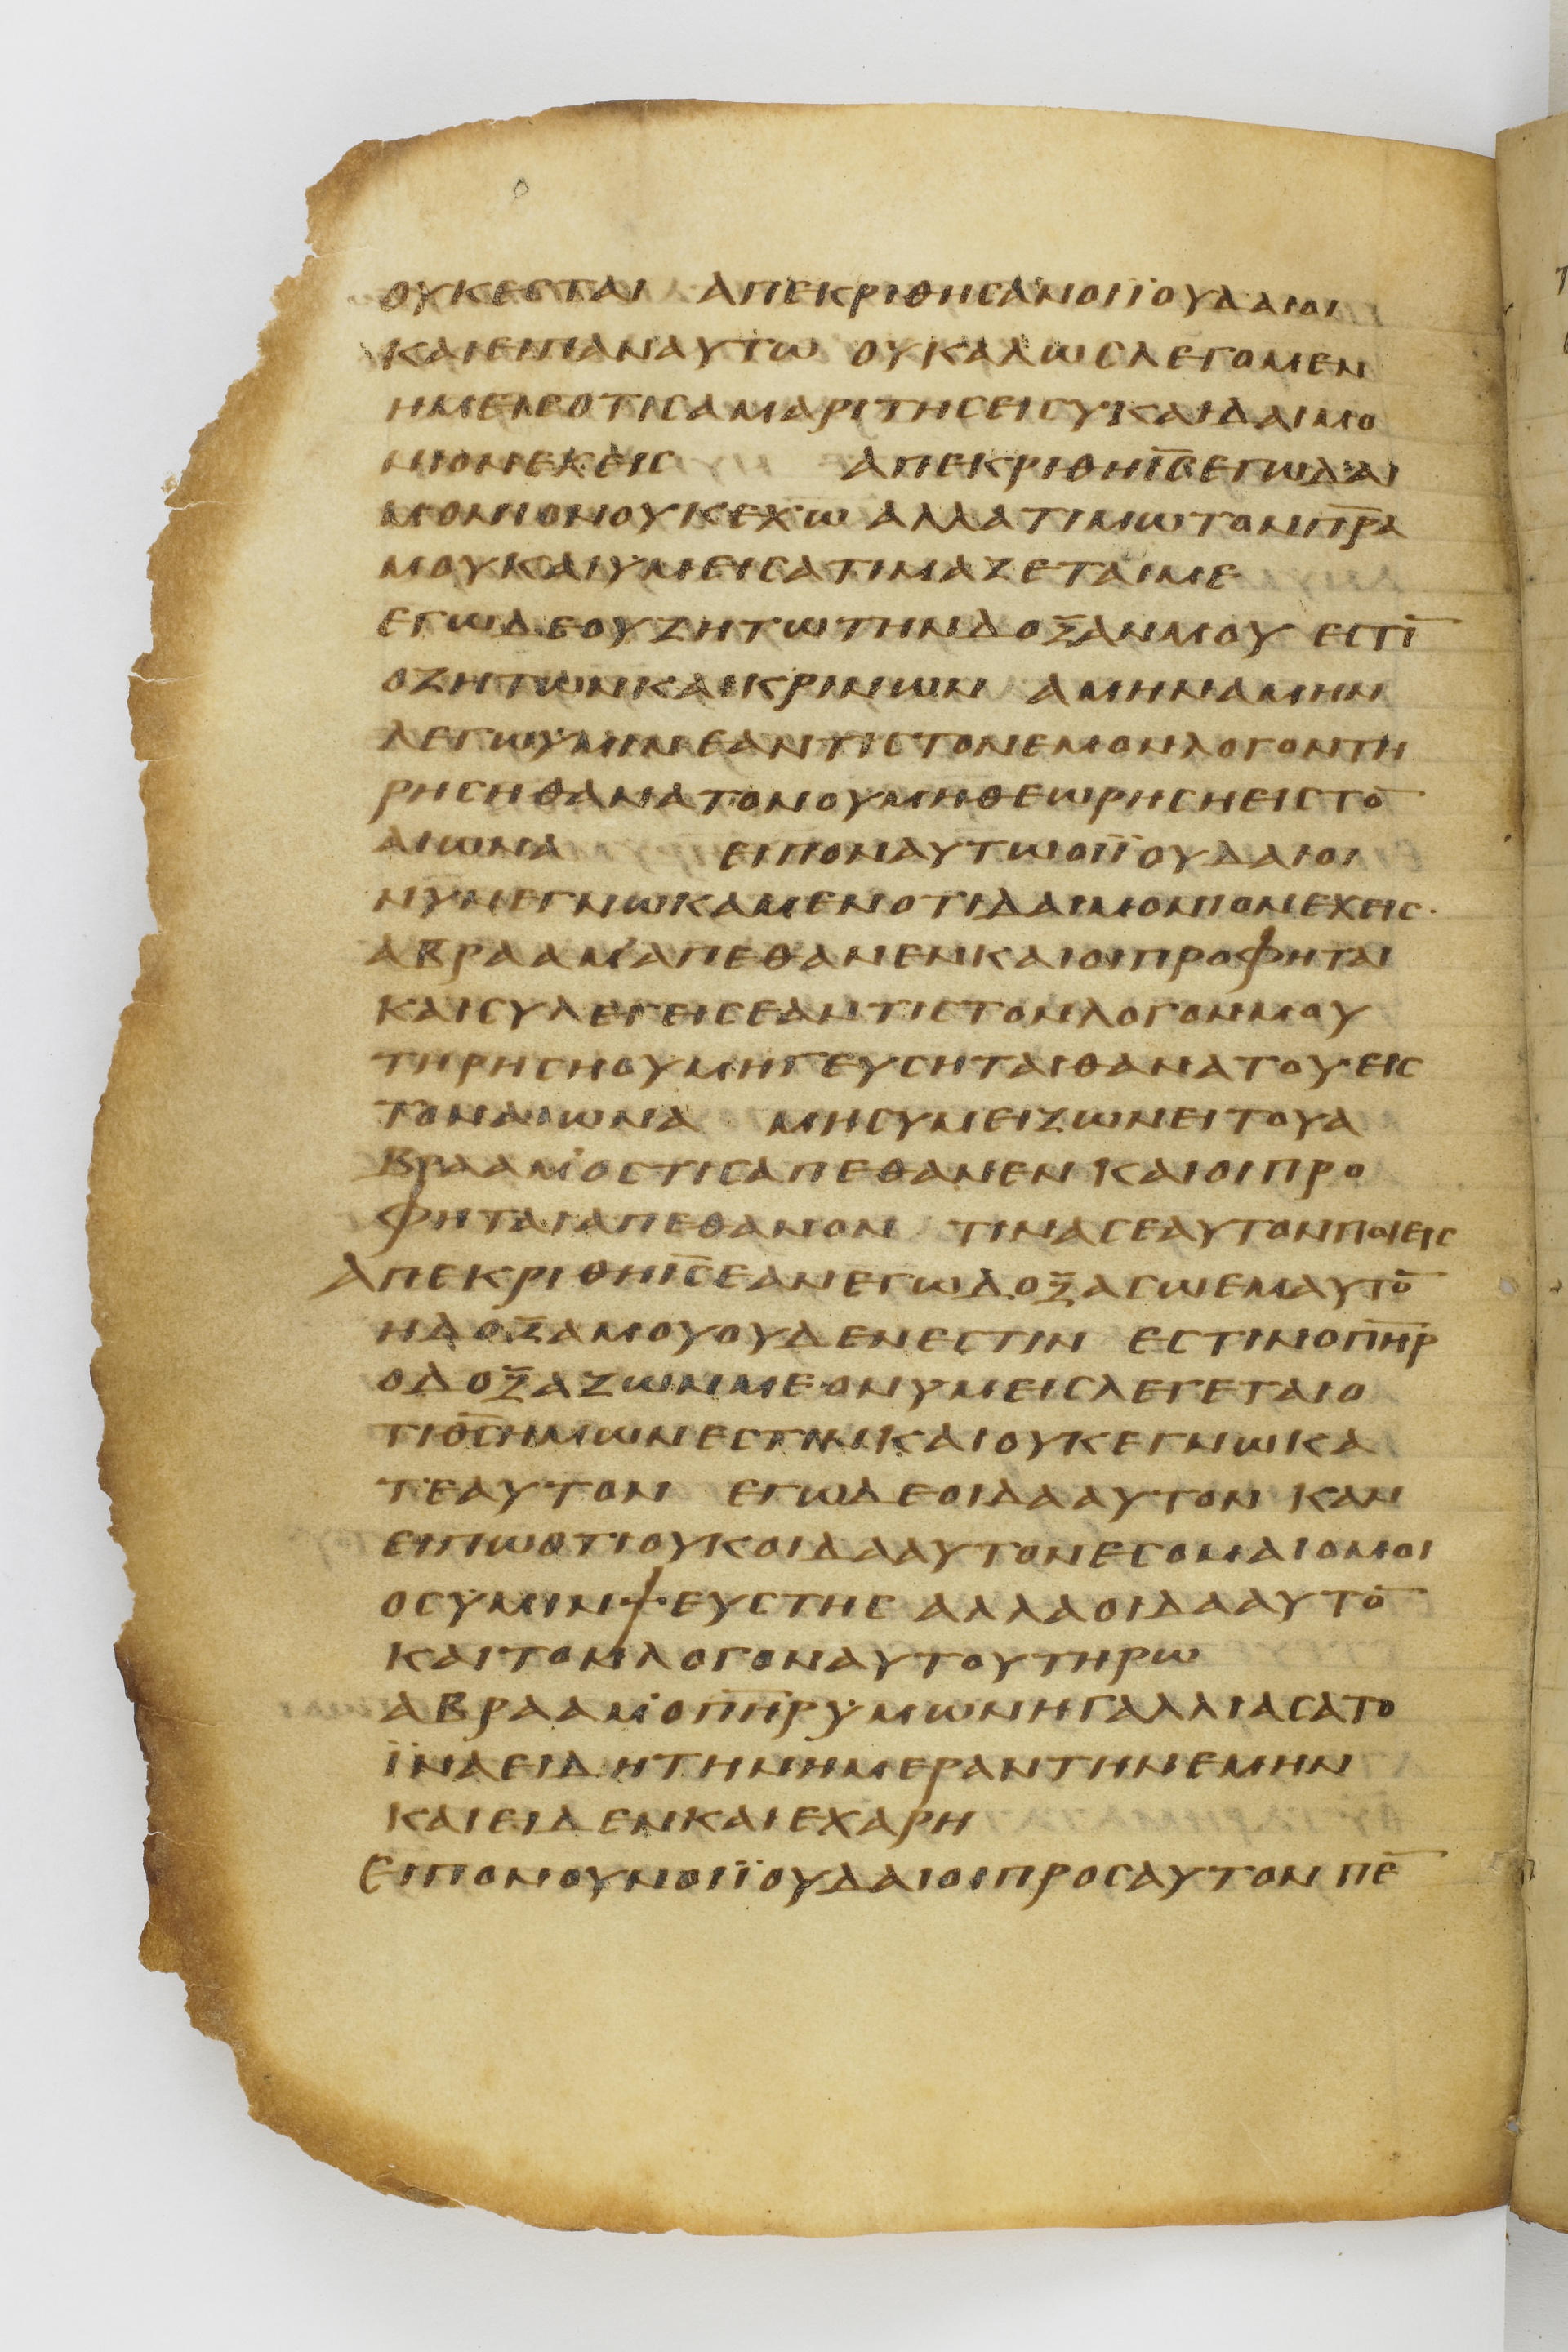 ουκεσται απεκριθησανοιϊουδαιοι
καιειπαναυτω ουκαλωσλεγομεν
ημεισοτισαμαριτησεισυκαιδαιμο
νιονεχεις απεκριθηι̅ς̅εγωδαι
μονιονουκεχω αλλατιμωτονπ̅ρ̅α̅
μουκαιυμεισατιμαζεταιμε
εγωδεουζητωτηνδοξανμου εστι̅
οζητωνκαικρινων αμηναμην
λεγωυμινεαντιστονεμονλογοντη
ρησηθανατονουμηθεωρησηειστο̅
αιωνα ειποναυτωοιϊουδαιοι
νυνεγνωκαμενοτιδαιμονιονεχεις·
αβρααμ᾽απεθανενκαιοιπροφηται
καισυλεγεισεαντιστονλογονμου
τηρησηουμηγευσηταιθανατουεις
τοναιωνα μησυμειζωνειτουα
βρααμ᾽οστισαπεθανενκαιοιπρο
φηταιαπεθανον τινασεαυτονποιεις
απεκριθηι̅ς̅εανεγωδοξασωεμαυτο̅
ηδοξαμουουδενεστιν εστινοπ̅η̅ρ̅
οδοξαζωνμεονυμεισλεγεταιο
τιο̅θ̅ς̅ημωνεστινκαιουκεγνωκα
τεαυτον εγωδεοιδααυτον καν
ειπωοτιουκοιδααυτονεσομαιομοι
οσυμινψευστης αλλαοιδααυτο̅
καιτονλογοναυτουτηρω
αβρααμ᾽οπ̅η̅ρ̅υμωνηγαλλιασατο
ϊναειδητηνημεραντηνεμην
καιειδενκαιεχαρη
ειπονουνοιϊουδαιοιπροσαυτονπε̅